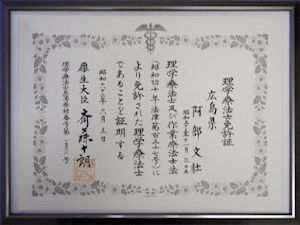 理学療法士免許証
広島県
阿部文社
昭和三十 年十一月三日生
理学療法士及び作業療法士法
(昭和四十年法律第百三十七号)に
より免許された理学療法士
であることを証明する
昭和六十三年 月三日
厚生大臣 斎藤十朗
理学療法士名簿登録番号第 号